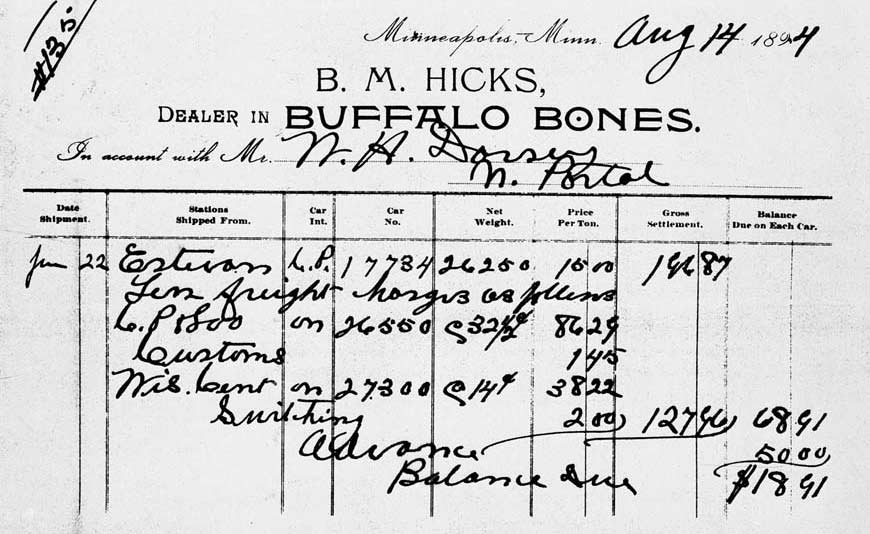 #135
Minneapolis, Minn. Aug 14 1894
B. M. HICKS,
DEALER IN BUFFALO BONES.
In account with Mr. W. H. Dorsey
N. Portal
Date Shipment. Stations Shipped From. Car Int. Car No. Net Weight. Price Per Ton. Gross Settlement. Balance Due on Each Car.
Jun 22 Estevan C.P. 17734 26250 15 00 196 87
Less freight charges as follows
C.P. & Soo on 26550 @ 32½¢ 86 29
Customs 1 45
Wis. Cent on 27300 @ 14¢ 38 22
Switching 2 00 127 96 68 91
Advance 50 00
Balance Due $18 91